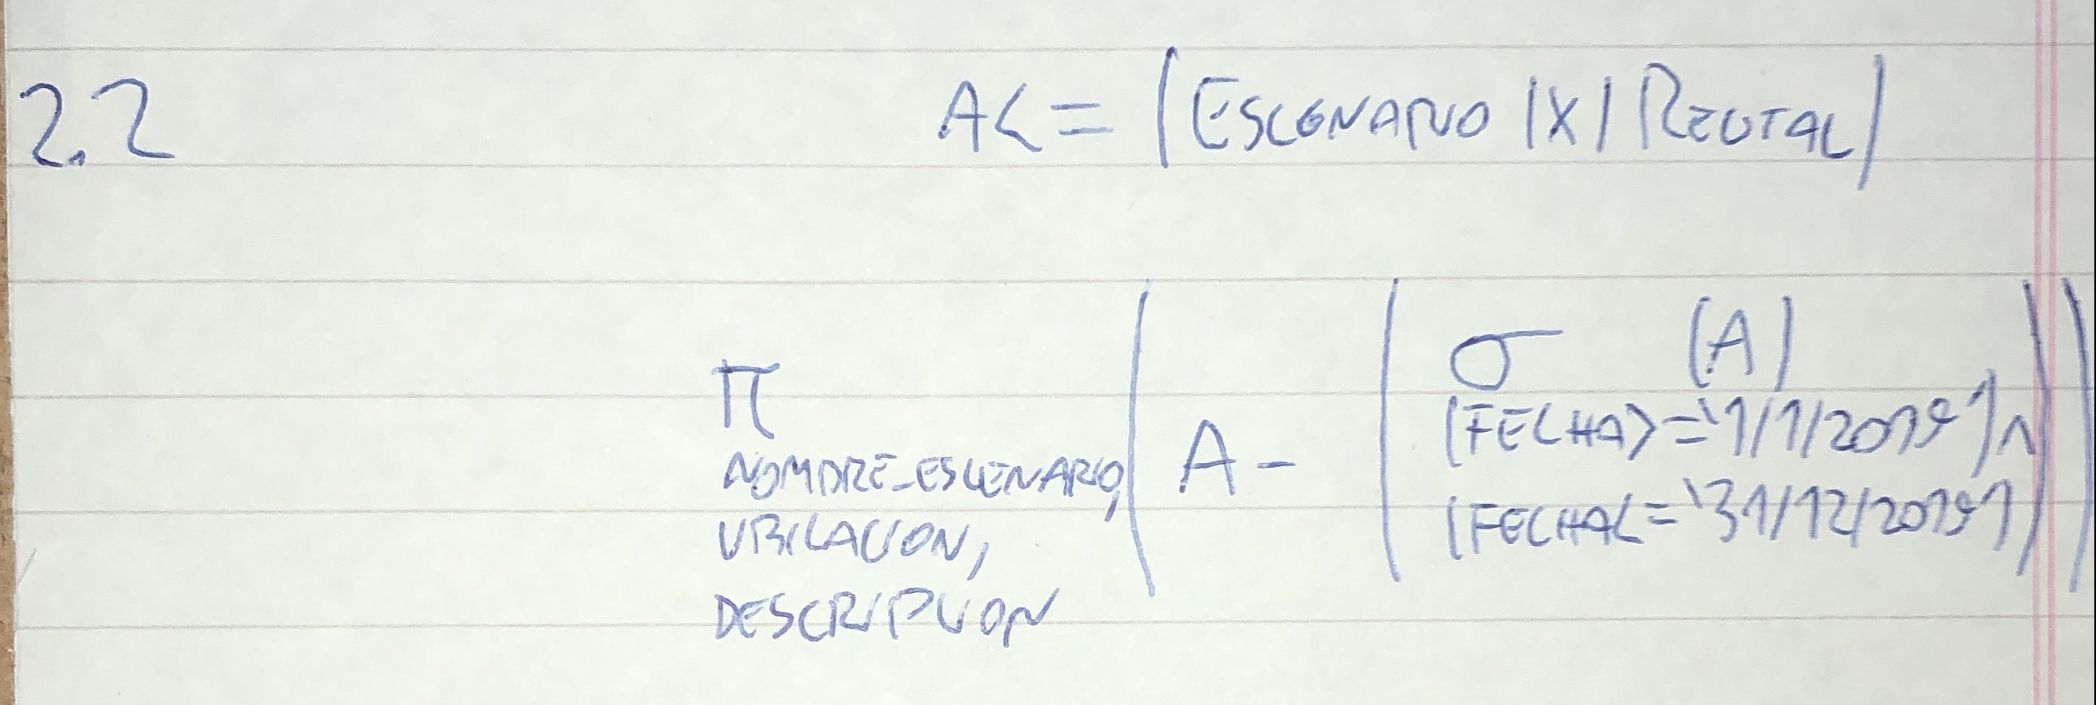 2.2 A<= (ESCENARIO |X| RECITAL)
π NOMBRE_ESCENARIO, UBICACION, DESCRIPCION (A - (σ (FECHA>='1/1/2019')^ (FECHA<='31/12/2019') (A)))